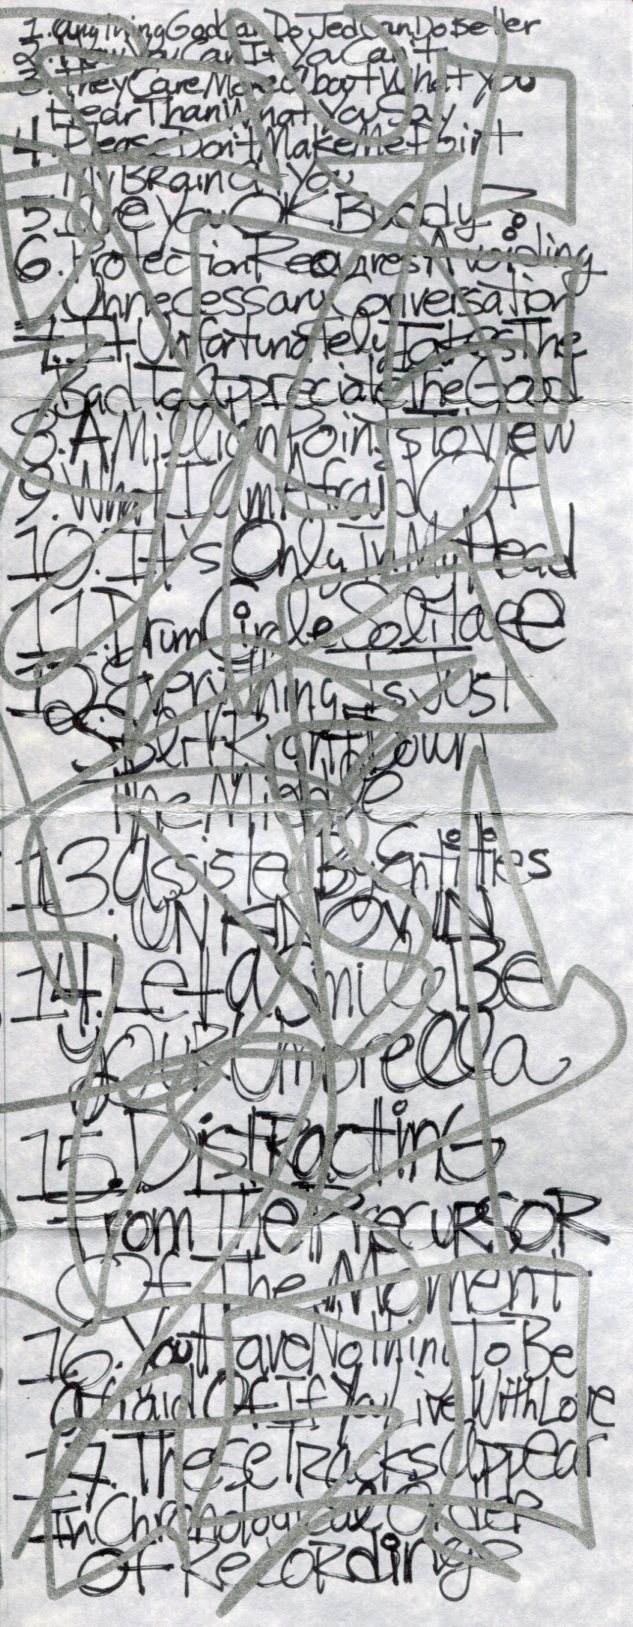 1. AnythingGodCanDoJedCanDoBetter
2. YouCan'tYouCan't
3. TheyCareMoreAboutWhatYou
HearThanWhatYouSay
4. PleaseDon'tMakeMePoint
MyBRainAtYou
5. AReYouOKBuddy?
6. ProtectionRequiresAvoiding
UnnecessaryConversation
7. ItUnfortunatelyTakesThe
BadToAppreciateTheGood
8. AMillionPointsToView
9. WhatIAmAfraidOf
10. It'sOnlyInMyHead
11. DrumCircleSolitaire
12. EverythingIsJust
SplitRightDown
TheMiddle
13. AssistedByEntities
UNKNOWN
14. LetASmileBe
yOURUmbrella
15. DistRactinG
FromThePRecuRSOR
OfTheMoment
16. YouHaveNothingToBe
AfraidOfIfYouLiveWithLove
17. TheseTracksAppear
InChronologicalOrdeR
OfRecoRdinge